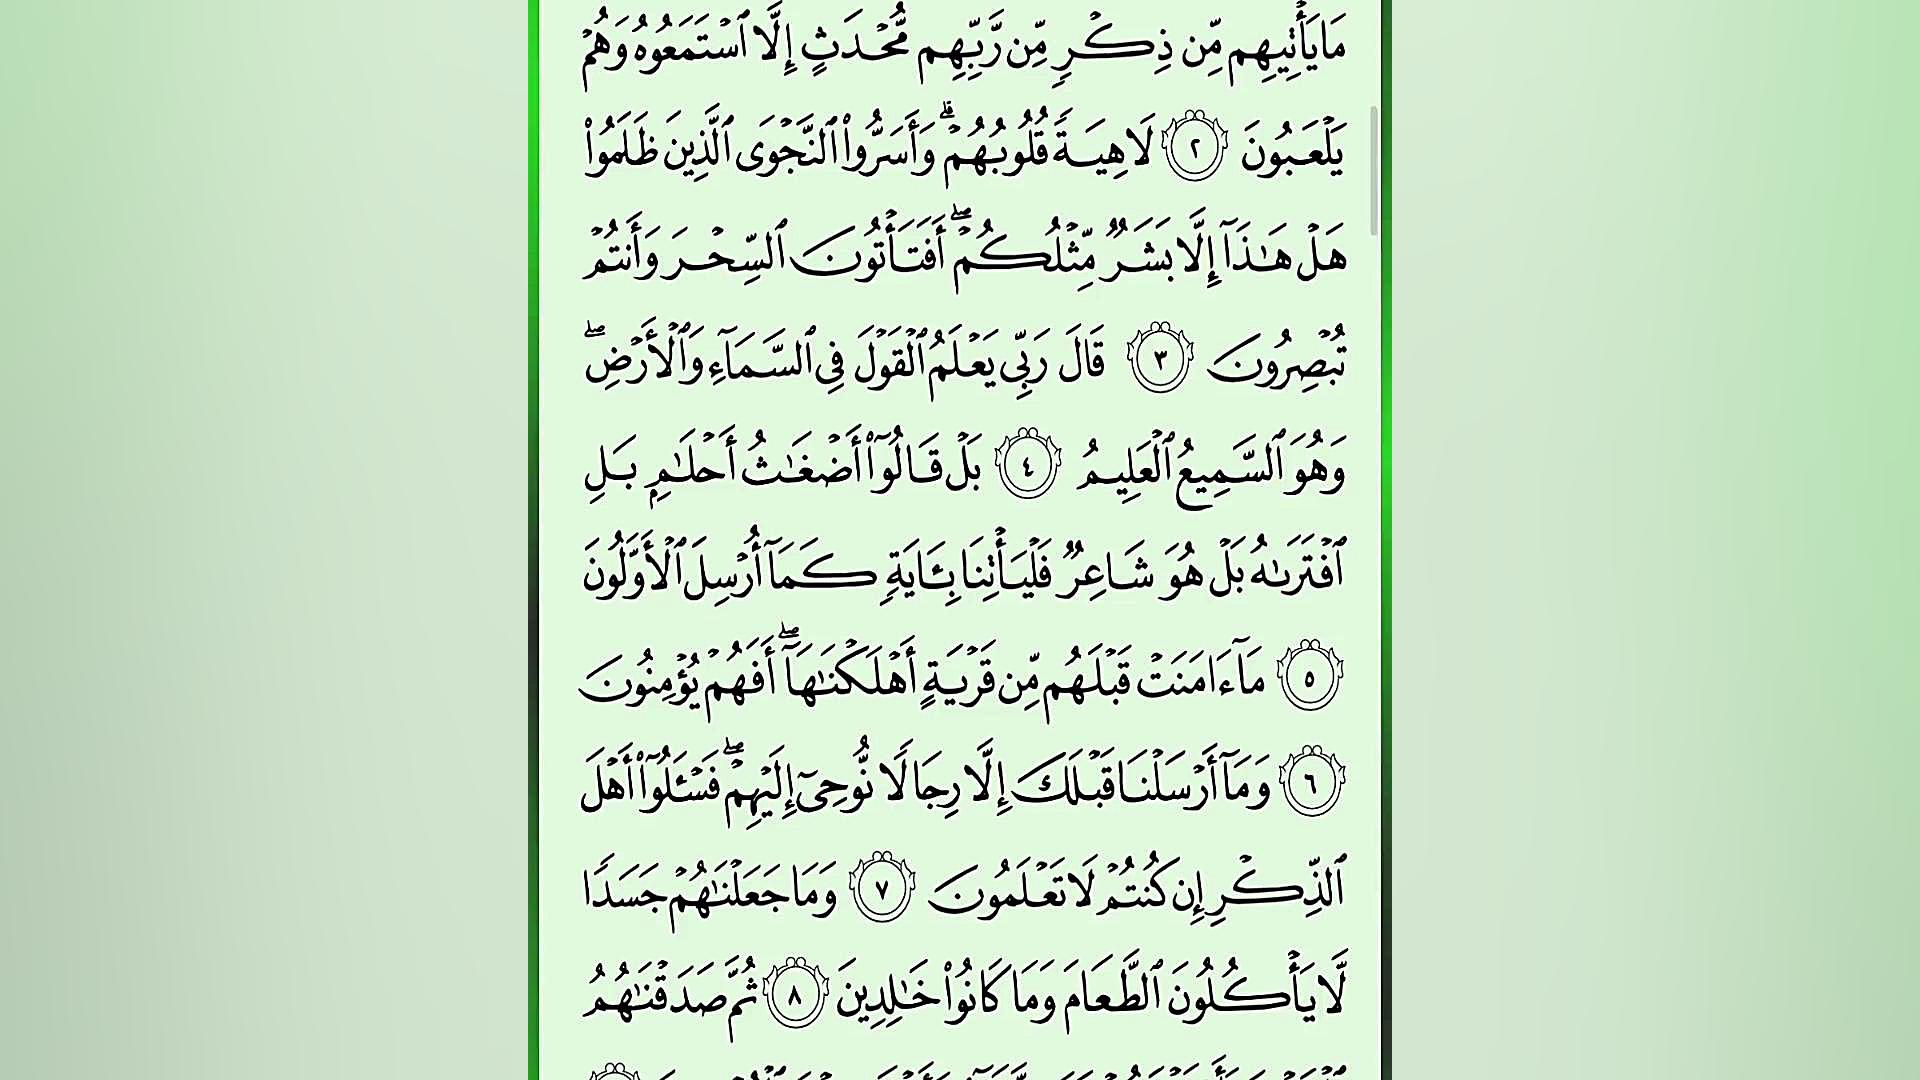 مَا يَأْتِيهِم مِّن ذِكْرٍ مِّن رَّبِّهِم مُّحْدَثٍ إِلَّا ٱسْتَمَعُوهُ وَهُمْ
يَلْعَبُونَ ٢ لَاهِيَةً قُلُوبُهُمْ ۗ وَأَسَرُّوا۟ ٱلنَّجْوَى ٱلَّذِينَ ظَلَمُوا۟
هَلْ هَـٰذَآ إِلَّا بَشَرٌ مِّثْلُكُمْ ۖ أَفَتَأْتُونَ ٱلسِّحْرَ وَأَنتُمْ
تُبْصِرُونَ ٣ قَالَ رَبِّى يَعْلَمُ ٱلْقَوْلَ فِى ٱلسَّمَآءِ وَٱلْأَرْضِ ۖ
وَهُوَ ٱلسَّمِيعُ ٱلْعَلِيمُ ٤ بَلْ قَالُوٓا۟ أَضْغَـٰثُ أَحْلَـٰمٍۭ بَلِ
ٱفْتَرَىٰهُ بَلْ هُوَ شَاعِرٌ فَلْيَأْتِنَا بِـَٔايَةٍ كَمَآ أُرْسِلَ ٱلْأَوَّلُونَ
٥ مَآ ءَامَنَتْ قَبْلَهُم مِّن قَرْيَةٍ أَهْلَكْنَـٰهَآ ۖ أَفَهُمْ يُؤْمِنُونَ
٦ وَمَآ أَرْسَلْنَا قَبْلَكَ إِلَّا رِجَالًا نُّوحِىٓ إِلَيْهِمْ ۖ فَسْـَٔلُوٓا۟ أَهْلَ
ٱلذِّكْرِ إِن كُنتُمْ لَا تَعْلَمُونَ ٧ وَمَا جَعَلْنَـٰهُمْ جَسَدًا
لَّا يَأْكُلُونَ ٱلطَّعَامَ وَمَا كَانُوا۟ خَـٰلِدِينَ ٨ ثُمَّ صَدَقْنَـٰهُمُ